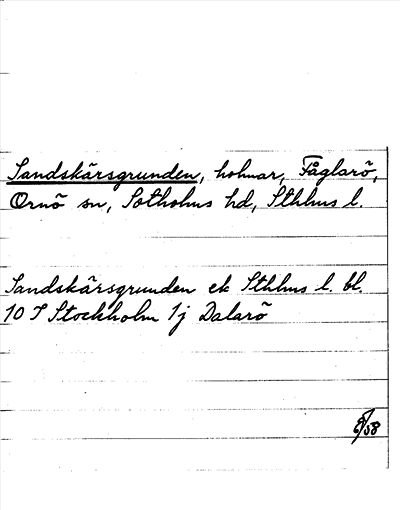 Sandskärsgrunden, holmar, Fåglarö,
Ornö sn, Sotholms hd, Sthlms l.
Sandskärsgrunden ek Sthlms l. bl.
10 I Stockholm 1j Dalarö
/58